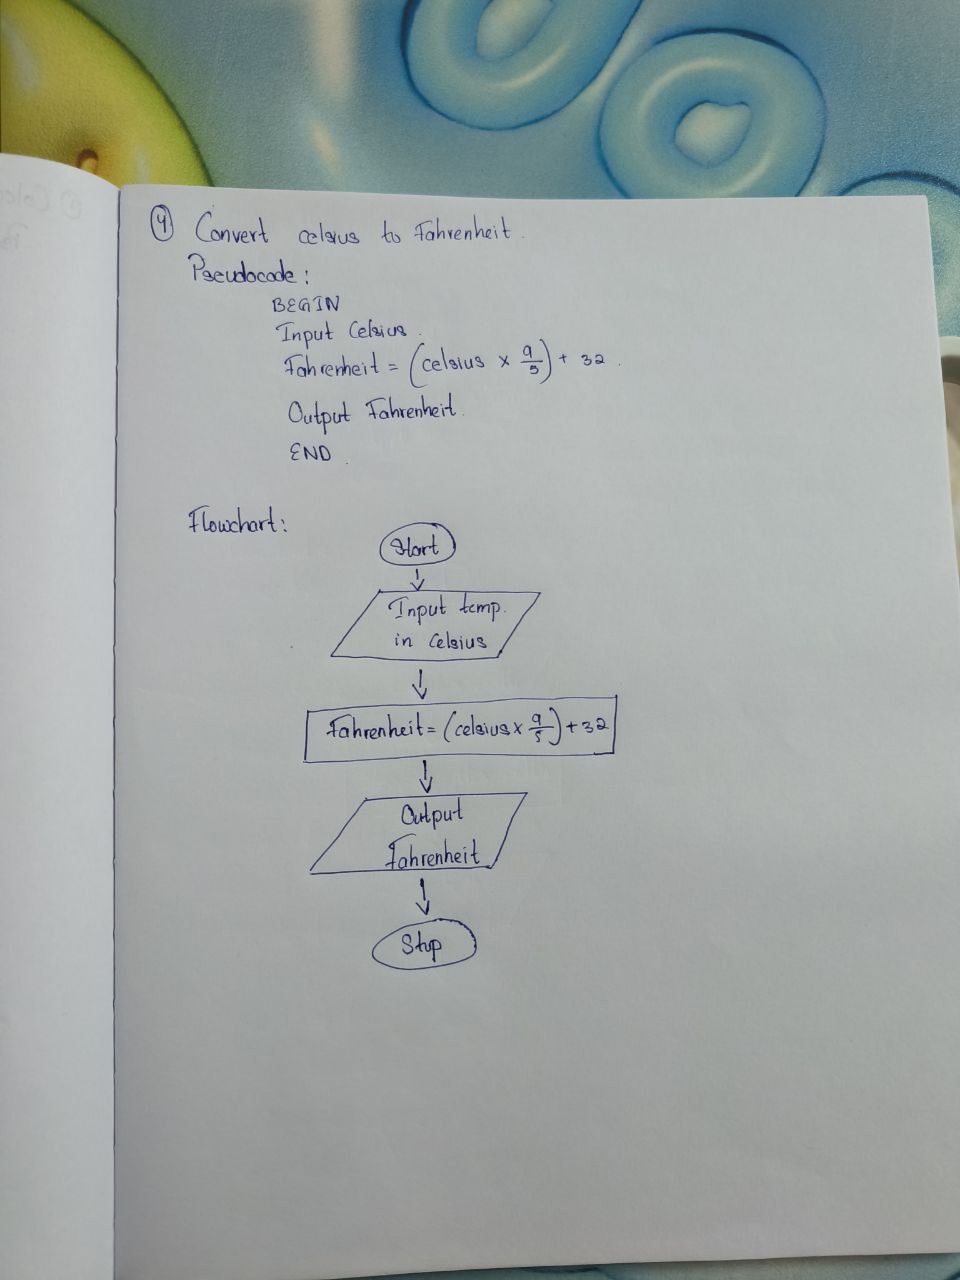 ④ Convert celsius to Fahrenheit.
Pseudocode:
BEGIN
Input Celsius.
Fahrenheit = (celsius × 9/5) + 32.
Output Fahrenheit.
END.
Flowchart:
Start
Input temp.
in Celsius
Fahrenheit = (celsius × 9/5) + 32
Output
Fahrenheit
Stop